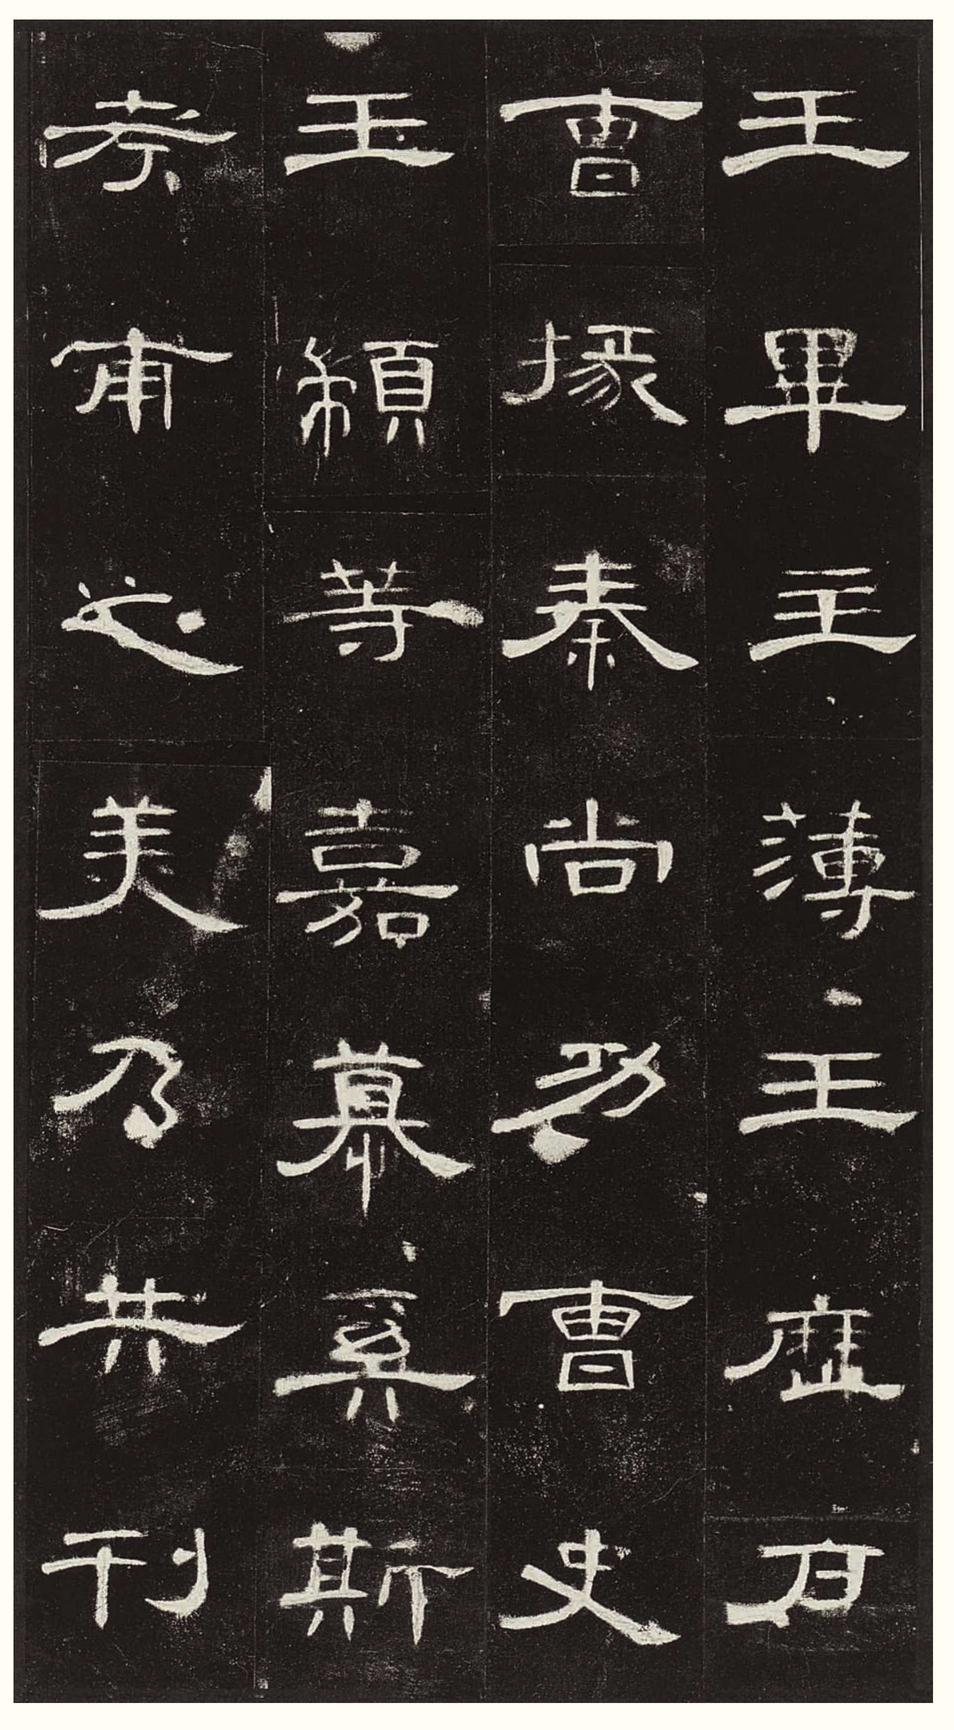 王畢主薄王歷戶
曹掾秦尚功曹史
王顓等嘉慕奚斯
考甫之美乃共刊